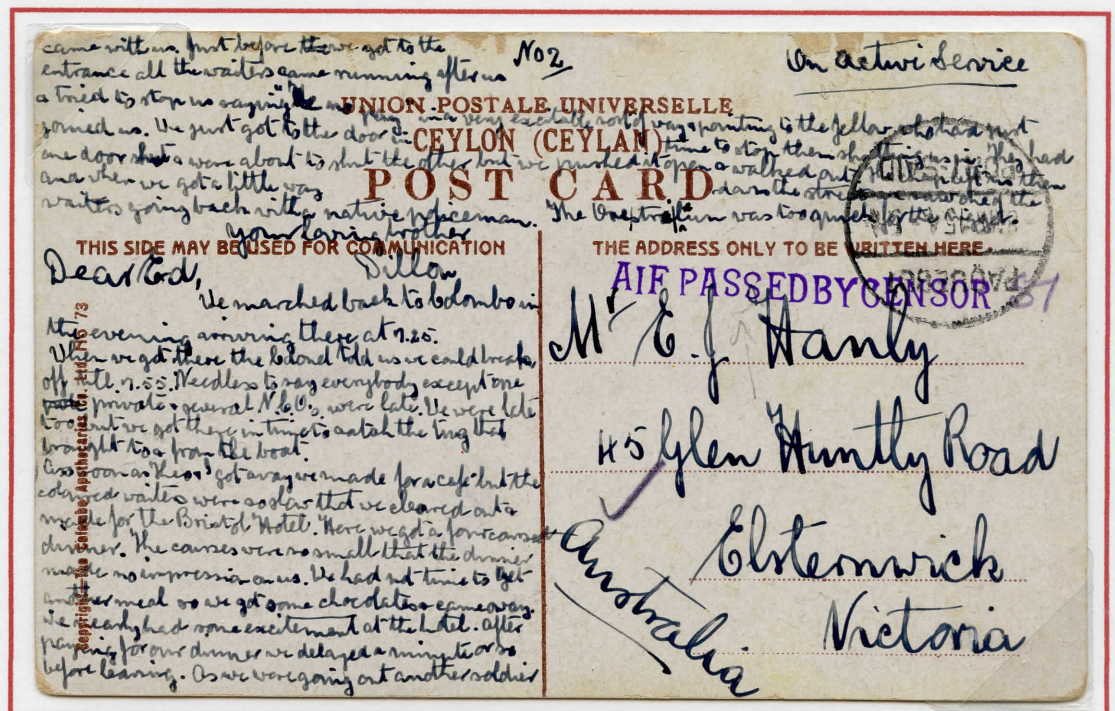 No 2
On active Service
UNION POSTALE UNIVERSELLE
CEYLON (CEYLAN)
POST CARD
THIS SIDE MAY BE USED FOR COMMUNICATION
THE ADDRESS ONLY TO BE WRITTEN HERE.
Dear Ed,
We marched back to Colombo in
the evening arriving there at 7.25.
When we got there the Colonel told us we could break
off until 7.55. Needless to say everybody except one
private & several N.C.O.s were late. We were late
too but we got there in time to catch the tug that
brought to & from the boat.
As soon as we got away we made for a cafe but the
coloured waiters were so slow that we cleared out &
made for the Bristol Hotel. Here we got a four course
dinner. The courses were so small that the dinner
made no impression on us. We had not time to get
another meal so we got some chocolates & came away.
We nearly had some excitement at the hotel. After
paying for our dinner we delayed a minute or so
before leaving. As we were going out another soldier
came with us. Just before we got to the
entrance all the waiters came running after us
& tried to stop us saying in a very excitable sort of way & pointing to the fellow who had just
joined us. We just got to the door in time to stop them shutting us in. They had
one door shut & were about to shut the other but we pushed it open & walked out. left us then
and when we got a little way down the street we watched the
waiters going back with a native policeman. The was too quick for the
Your loving brother
Dillon
AIF PASSED BY CENSOR
PAQUEBOT
Mr E. J. Hanly
45 Glen Huntly Road
Elsternwick
Victoria
Australia
Copyright The Colombo Apothecaries Co. Ltd. No 73